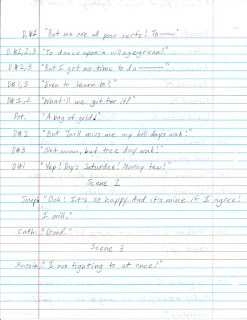 D.#1 "But we are all poor serfs! To ——
D.#1,2,3 "To dance upon a village green!"
D#2,3 "But I got no time to do ————"
D#1,3 "Even to learn to?"
D#1,2 "What'll we git fer it?
Pet. "A bag of gold!
D#2 "But They'll miss me my boll day's wuk!"
D#3 "Not mum, but tree day wuk!
D#1 "Yep! Day's Saturday! Norray tew!"
Scene 2
Joseph "Ooh! It's so happy. And it's mine if I agree!
I will."
Cath. "Good."
Scene 3
"I am fighting to at once!"